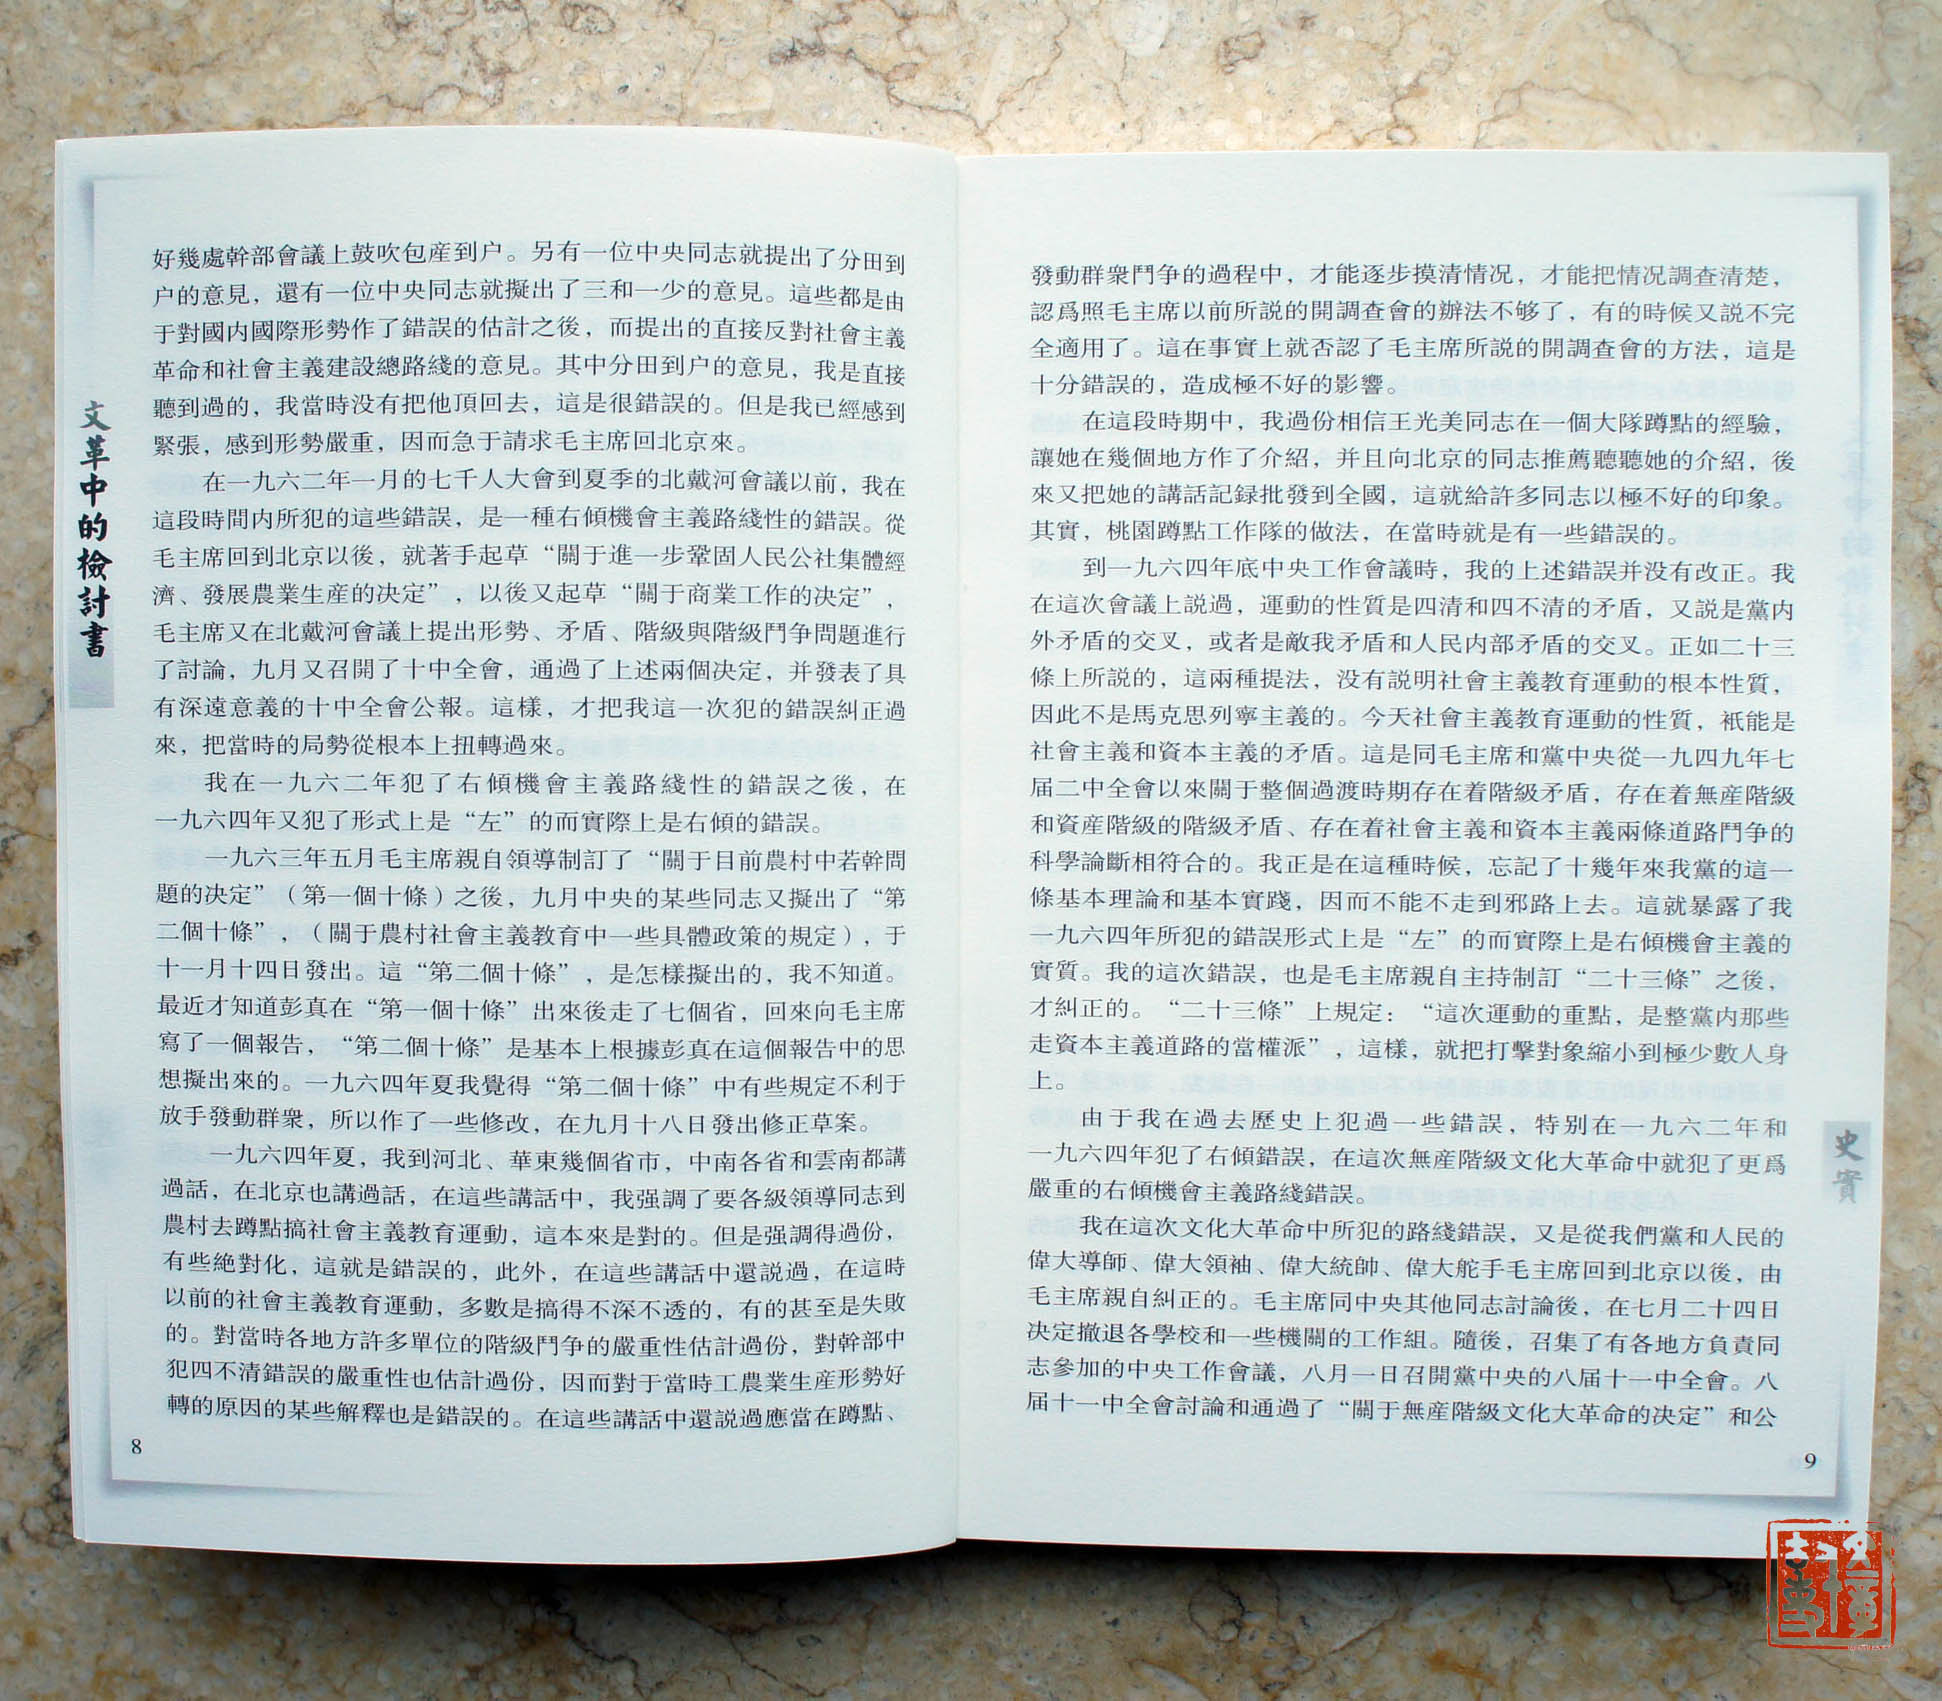 文革中的檢討書
好幾處幹部會議上鼓吹包産到户。另有一位中央同志就提出了分田到
户的意見，還有一位中央同志就擬出了三和一少的意見。這些都是由
于對國内國際形勢作了錯誤的估計之後，而提出的直接反對社會主義
革命和社會主義建設總路綫的意見。其中分田到户的意見，我是直接
聽到過的，我當時没有把他頂回去，這是很錯誤的。但是我已經感到
緊張，感到形勢嚴重，因而急于請求毛主席回北京來。
在一九六二年一月的七千人大會到夏季的北戴河會議以前，我在
這段時間内所犯的這些錯誤，是一種右傾機會主義路綫性的錯誤。從
毛主席回到北京以後，就著手起草“關于進一步鞏固人民公社集體經
濟、發展農業生産的决定”，以後又起草“關于商業工作的决定”，
毛主席又在北戴河會議上提出形勢、矛盾、階級與階級鬥争問題進行
了討論，九月又召開了十中全會，通過了上述兩個决定，并發表了具
有深遠意義的十中全會公報。這樣，才把我這一次犯的錯誤糾正過
來，把當時的局勢從根本上扭轉過來。
我在一九六二年犯了右傾機會主義路綫性的錯誤之後，在
一九六四年又犯了形式上是“左”的而實際上是右傾的錯誤。
一九六三年五月毛主席親自領導制訂了“關于目前農村中若幹問
題的决定”（第一個十條）之後，九月中央的某些同志又擬出了“第
二個十條”，（關于農村社會主義教育中一些具體政策的規定），于
十一月十四日發出。這“第二個十條”，是怎樣擬出的，我不知道。
最近才知道彭真在“第一個十條”出來後走了七個省，回來向毛主席
寫了一個報告，“第二個十條”是基本上根據彭真在這個報告中的思
想擬出來的。一九六四年夏我覺得“第二個十條”中有些規定不利于
放手發動群衆，所以作了一些修改，在九月十八日發出修正草案。
一九六四年夏，我到河北、華東幾個省市，中南各省和雲南都講
過話，在北京也講過話，在這些講話中，我强調了要各級領導同志到
農村去蹲點搞社會主義教育運動，這本來是對的。但是强調得過份，
有些絶對化，這就是錯誤的，此外，在這些講話中還説過，在這時
以前的社會主義教育運動，多數是搞得不深不透的，有的甚至是失敗
的。對當時各地方許多單位的階級鬥争的嚴重性估計過份，對幹部中
犯四不清錯誤的嚴重性也估計過份，因而對于當時工農業生産形勢好
轉的原因的某些解釋也是錯誤的。在這些講話中還説過應當在蹲點、
8
發動群衆鬥争的過程中，才能逐步摸清情况，才能把情况調查清楚，
認爲照毛主席以前所説的開調查會的辦法不够了，有的時候又説不完
全適用了。這在事實上就否認了毛主席所説的開調查會的方法，這是
十分錯誤的，造成極不好的影響。
在這段時期中，我過份相信王光美同志在一個大隊蹲點的經驗，
讓她在幾個地方作了介紹，并且向北京的同志推薦聽聽她的介紹，後
來又把她的講話記録批發到全國，這就給許多同志以極不好的印象。
其實，桃園蹲點工作隊的做法，在當時就是有一些錯誤的。
到一九六四年底中央工作會議時，我的上述錯誤并没有改正。我
在這次會議上説過，運動的性質是四清和四不清的矛盾，又説是黨内
外矛盾的交叉，或者是敵我矛盾和人民内部矛盾的交叉。正如二十三
條上所説的，這兩種提法，没有説明社會主義教育運動的根本性質，
因此不是馬克思列寧主義的。今天社會主義教育運動的性質，衹能是
社會主義和資本主義的矛盾。這是同毛主席和黨中央從一九四九年七
届二中全會以來關于整個過渡時期存在着階級矛盾，存在着無産階級
和資産階級的階級矛盾、存在着社會主義和資本主義兩條道路鬥争的
科學論斷相符合的。我正是在這種時候，忘記了十幾年來我黨的這一
條基本理論和基本實踐，因而不能不走到邪路上去。這就暴露了我
一九六四年所犯的錯誤形式上是“左”的而實際上是右傾機會主義的
實質。我的這次錯誤，也是毛主席親自主持制訂“二十三條”之後，
才糾正的。“二十三條”上規定：“這次運動的重點，是整黨内那些
走資本主義道路的當權派”，這樣，就把打擊對象縮小到極少數人身
上。
由于我在過去歷史上犯過一些錯誤，特别在一九六二年和
一九六四年犯了右傾錯誤，在這次無産階級文化大革命中就犯了更爲
嚴重的右傾機會主義路綫錯誤。
我在這次文化大革命中所犯的路綫錯誤，又是從我們黨和人民的
偉大導師、偉大領袖、偉大統帥、偉大舵手毛主席回到北京以後，由
毛主席親自糾正的。毛主席同中央其他同志討論後，在七月二十四日
决定撤退各學校和一些機關的工作組。隨後，召集了有各地方負責同
志參加的中央工作會議，八月一日召開黨中央的八届十一中全會。八
届十一中全會討論和通過了“關于無産階級文化大革命的决定”和公
史實
9